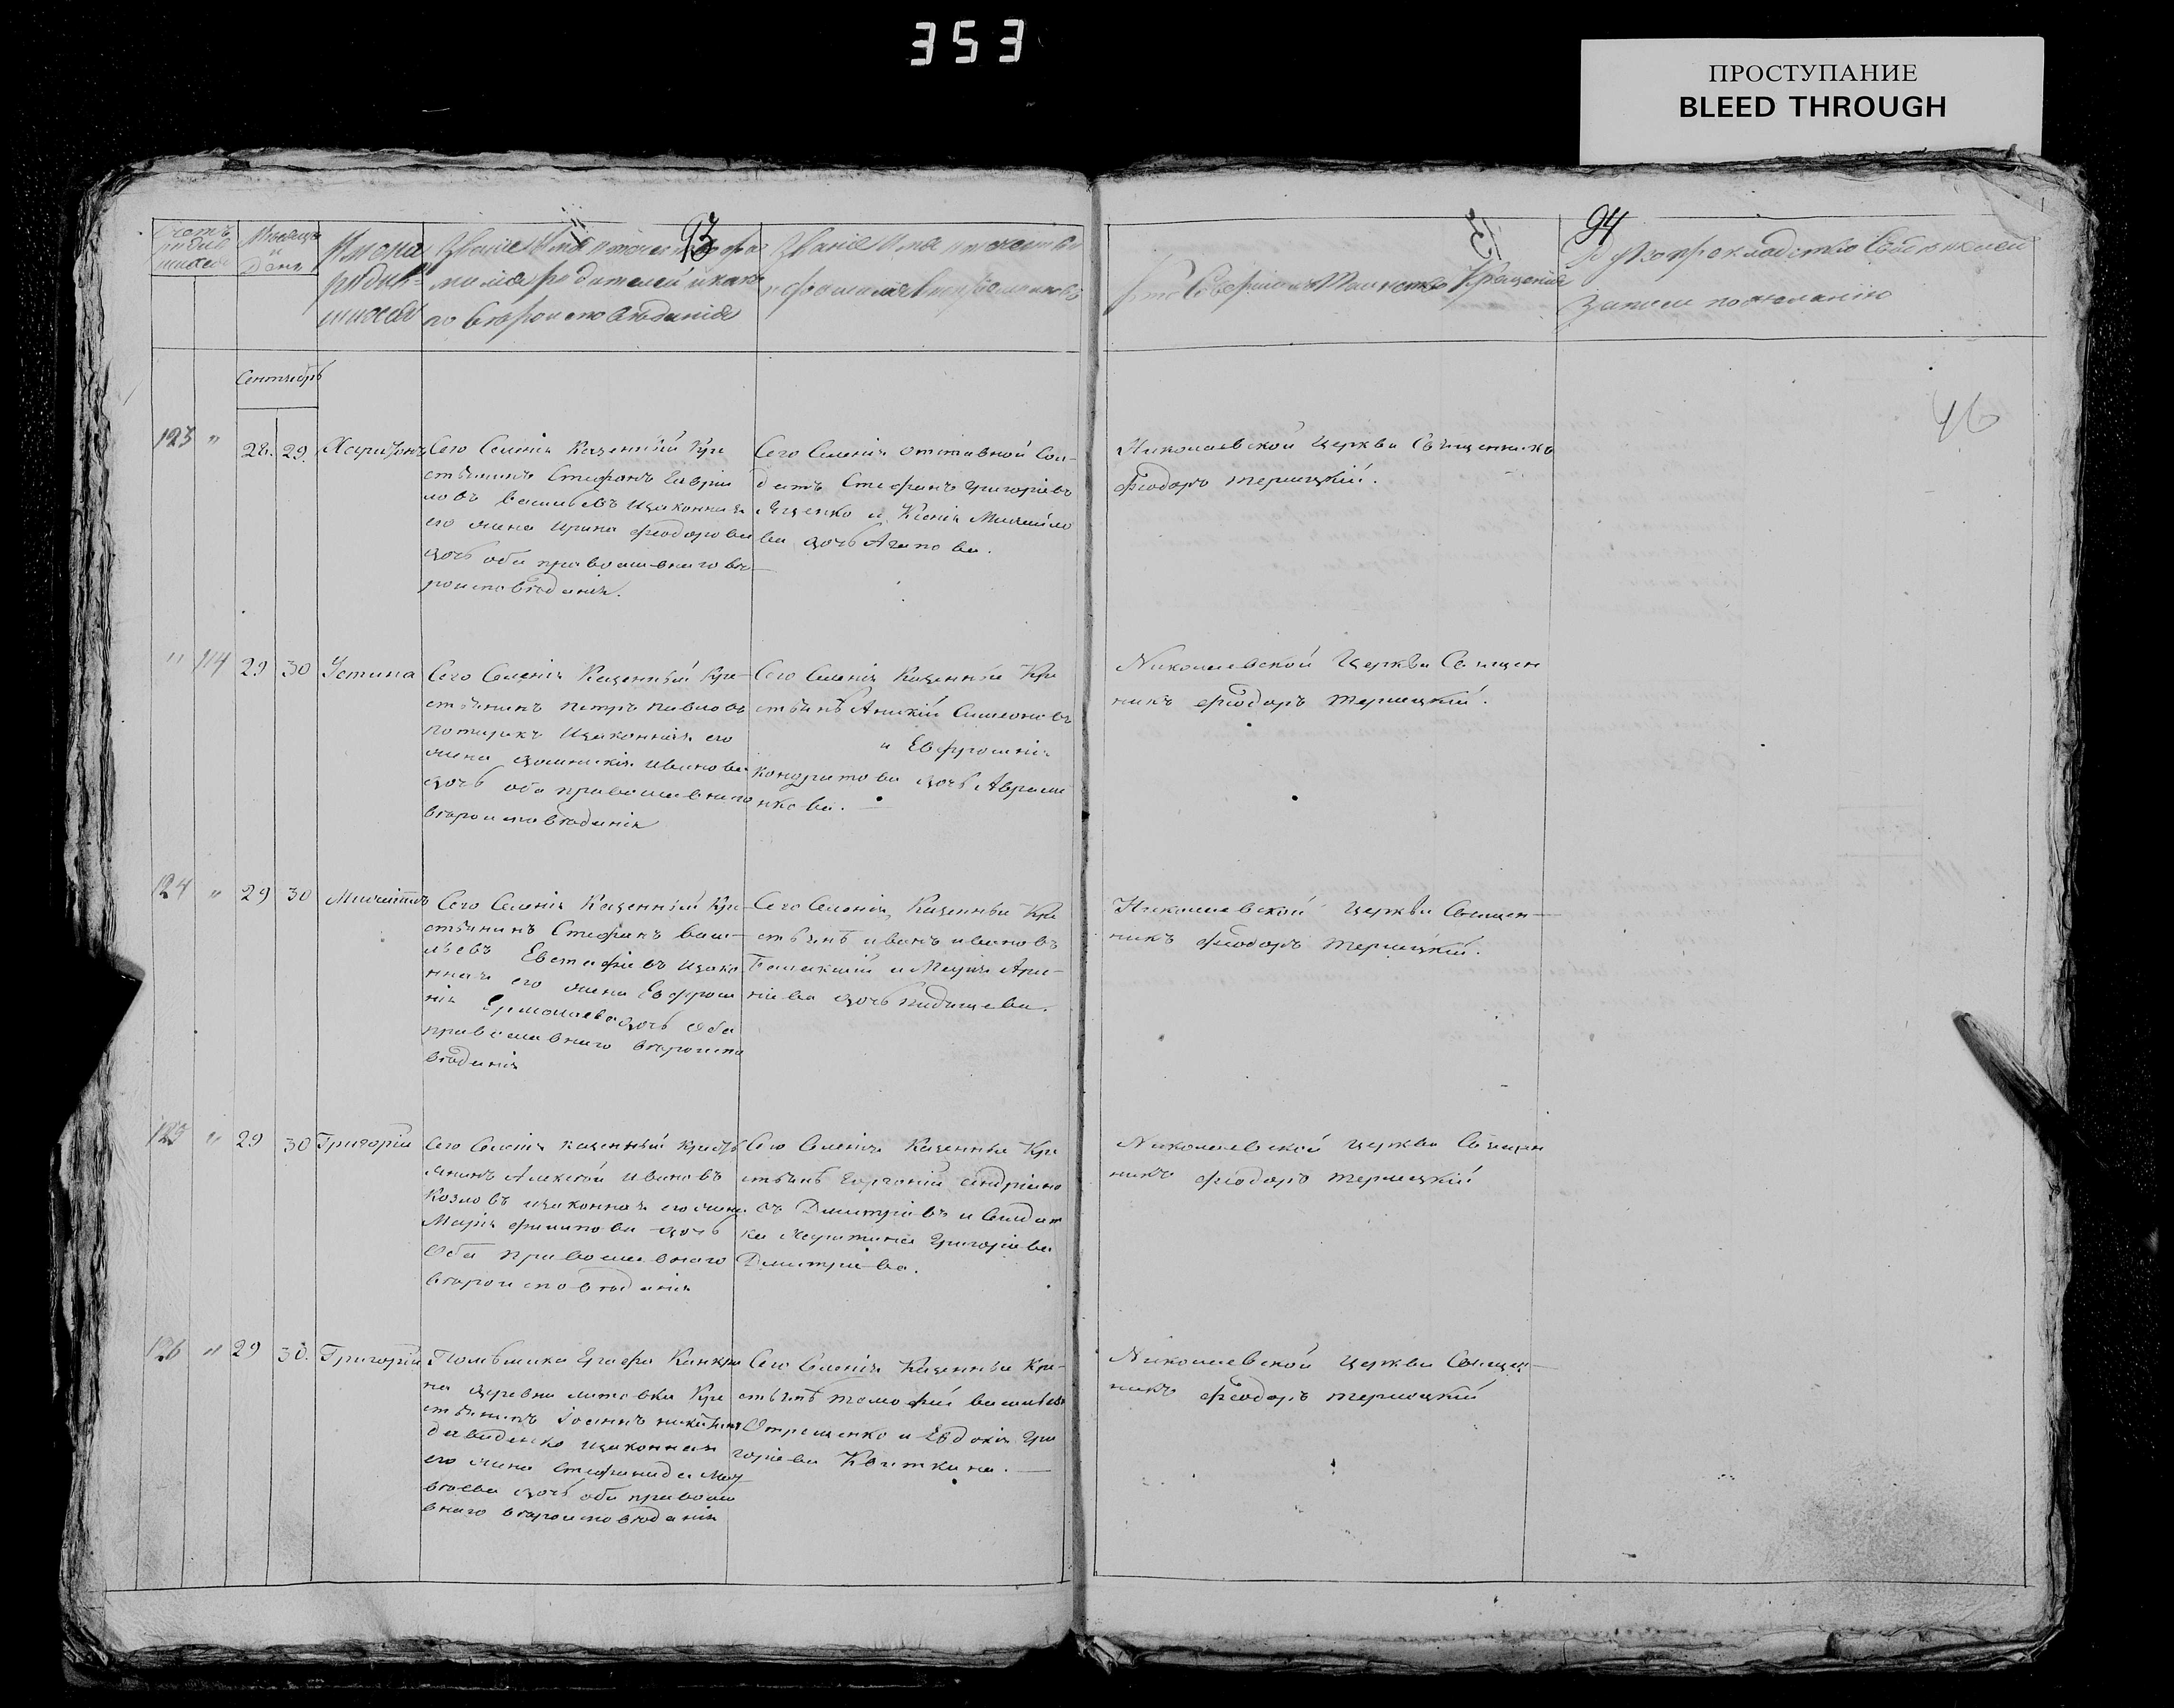 353
ПРОСТУПАНИЕ
BLEED THROUGH
93
94
46
Счетъ родившихся
Мѣсяцъ и день
Имена родившихся
Званіе Имя отчество и фамилія родителей и какого вѣроисповѣданія
Званіе Имя отчество и фамилія воспріемниковъ
Кто совершалъ Таинство Крещенія
Рукоприкладство свидѣтелей записи по желанію
Сентябрь
123 " 28. 29. Харитонъ
Сего Селенія Казенный Кре
стьянинъ Стефанъ Гаврии
ловъ Васильевъ и законная
его жена Ирина Феодорова
дочь оба православнаго вѣ
роисповѣданія.
Сего Селенія отставной Сол-
датъ Стефанъ Григоріевъ
Яценко и Ксенія Михайло
ва дочь Агипова.
Николаевской Церкви Священникъ
Феодоръ Терлецкій.
" 114 29 30 Устина
Сего Селенія Казенный Кре-
стьянинъ Петръ Павловъ
и законная его
жена Домникія Иванова
дочь оба православнаго
вѣроисповѣданія
Сего Селенія Казенные Кре
стьянѣ Аникій Симеоновъ
и Евфросинія
Кондратова дочь Аврами
нкова.
Николаевской Церкви Священ
никъ Феодоръ Терлецкій.
124 " 29 30 Михаилъ
Сего Селенія Казенный Кре-
стьянинъ Стефанъ Васи-
льевъ Евстафіевъ и зако
нная его жена Евфроси
нія Ермолаева дочь оба
православнаго вѣроиспо
вѣданія
Сего Селенія, Казенные Кре
стьянѣ Иванъ Ивановъ
и Марія
дочь
Николаевской Церкви Священ-
никъ Феодоръ Терлецкій.
125 " 29 30 Григорій
Сего Селенія Казенный Кресть
янинъ Алексѣй Ивановъ
Козловъ и законная его жена
Марія Филипова дочь
Оба православнаго
вѣроисповѣданія
Сего Селенія Казенные Кре
стьянѣ Андріяно
въ Дмитріевъ и Солдат
ка Харитина Григоріева
Дмитріева.
Николаевской Церкви Священ
никъ Феодоръ Терлецкій
126 " 29 30. Григорій
Помѣщика Графа Канкри
на деревни Литовки Кре
стьянинъ Іоаннъ Никитинъ
Давиденко и законная
его жена Стефанида Мат
вѣева дочь оба правосла
внаго вѣроисповѣданія
Сего Селенія Казенные Кре-
стьянѣ Тимофей Васильевъ
и Евдокія Гри
горіева Квиткина.
Николаевской Церкви Священ-
никъ Феодоръ Терлецкій